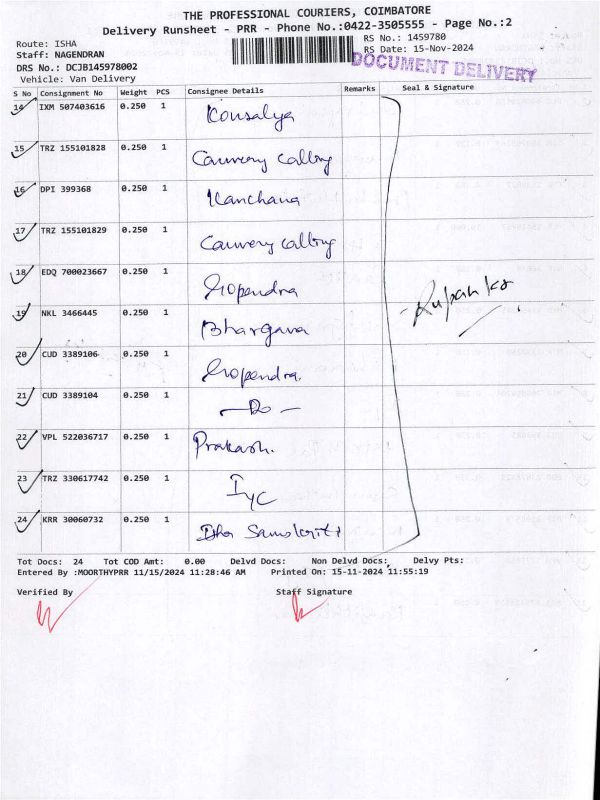 THE PROFESSIONAL COURIERS, COIMBATORE
Delivery Runsheet - PRR - Phone No.:0422-3505555 - Page No.:2
Route: ISHA
RS No.: 1459780
Staff: NAGENDRAN
RS Date: 15-Nov-2024
DOCUMENT DELIVERY
DRS No.: DCJB145978002
Vehicle: Van Delivery
S No Consignment No Weight PCS Consignee Details Remarks Seal & Signature
14 IXM 507403616 0.250 1 Kousalya
15 TRZ 155101828 0.250 1 Cauvery calling
16 DPI 399368 0.250 1 Kanchana
17 TRZ 155101829 0.250 1 Cauvery calling
18 EDQ 700023667 0.250 1 Gopendra
19 NKL 3466445 0.250 1 Bhargava
20 CUD 3389106 0.250 1 Gopendra.
21 CUD 3389104 0.250 1 - Do -
22 VPL 522036717 0.250 1 Prakash.
23 TRZ 330617742 0.250 1 IYC
24 KRR 30060732 0.250 1 Isha Samskriti
Tot Docs: 24 Tot COD Amt: 0.00 Delvd Docs: Non Delvd Docs: Delvy Pts:
Entered By :MOORTHYPRR 11/15/2024 11:28:46 AM Printed On: 15-11-2024 11:55:19
Verified By Staff Signature